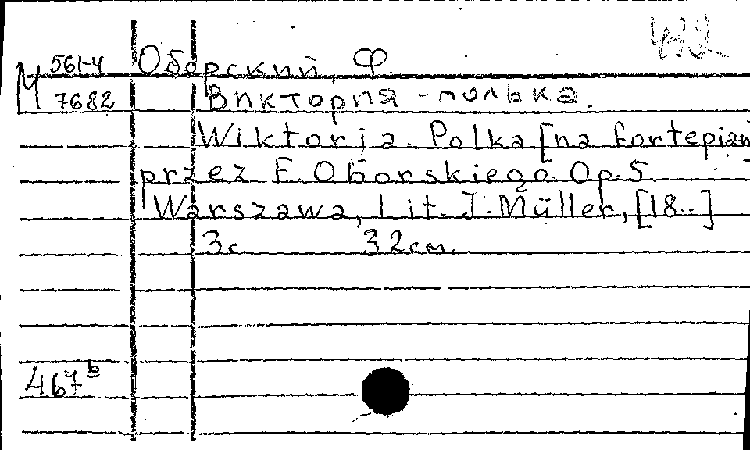 М 561-4
7682
Оборский, Ф.
Виктория - полька.
Wiktorja. Polka [na fortepian
przez F. Oborskiego. Op. 5.
Warszawa, Lit. J. Müller, [18..]
3с 32см.
467ь